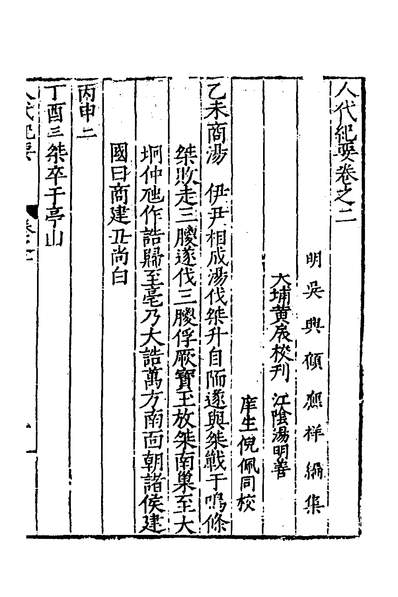 人代紀要卷之二
明吳興顧應祥編集
大埔黃扆校刊 江陰湯明善
庠生倪佩同校
乙未商湯 伊尹相成湯伐桀升自陑遂與桀戰于鳴條
桀敗走三朡遂伐三朡俘厥寶玉放桀南巢至大
坰仲虺作誥歸至亳乃大誥萬方南面朝諸侯建
國曰商建丑尚白
丙申二
丁酉三桀卒于亭山
人代紀要 卷之二 一